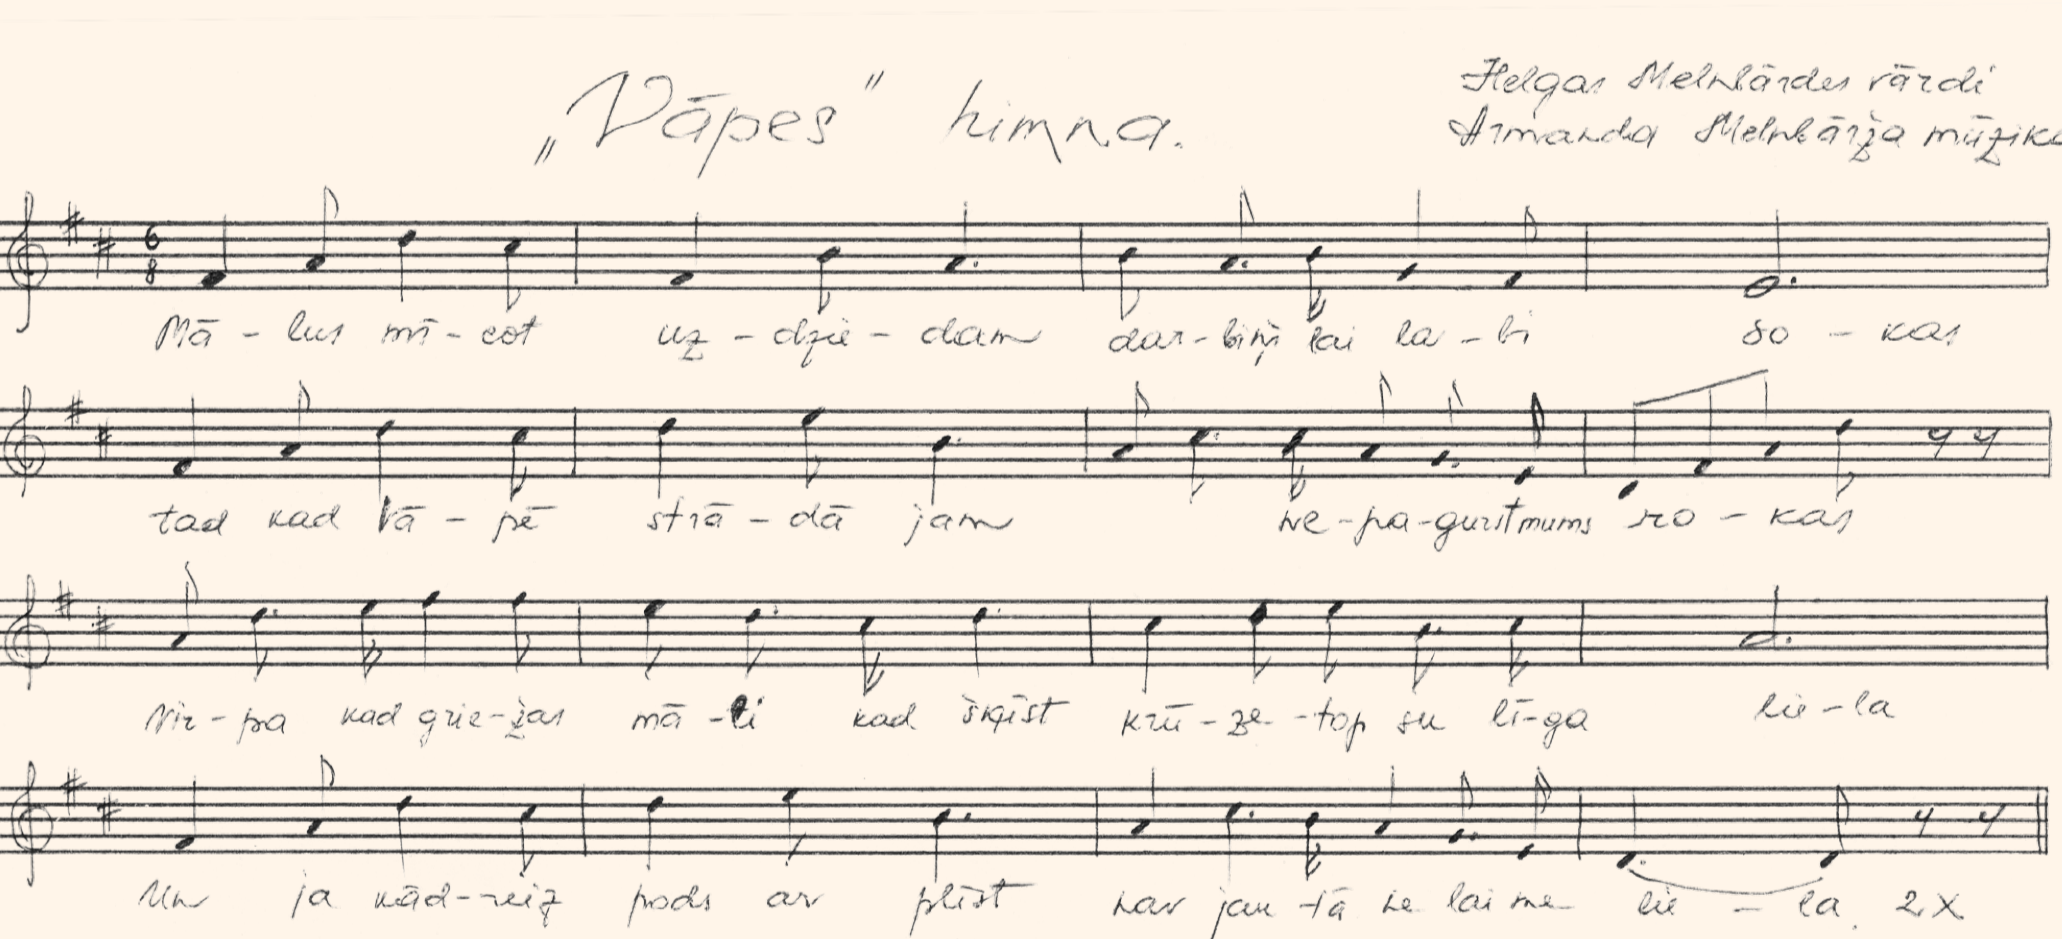 „Vāpes" himna.
Helgas Melnbārdes vārdi
Armanda Melnbārža mūzika
6
8
Mā - lus mī - cot uz - dzie - dam dar - biņš lai la - bi so - kas
tad kad Vā - pē strā - dā jam ne - pa - gurst mums ro - kas
Vir - pa kad grie - žas mā - li kad šķīst krū - ze - top su lī - ga lie - la
Un ja kād - reiz pods ar plīst nav jau - tā ne lai me lie - la. 2X